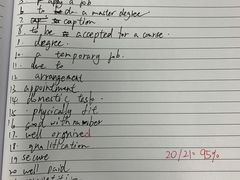 5. apply a job
6. to do a master degree
7. caption
8. to be accepted for a course.
9. degree.
10. a temporary job.
11. due to
12. arrangement
13. appointment
14. domestic task.
15. physically fit
16. good with number
17. well orgnised
18. qualitication
19. secure
20. well paid
20/21= 95%